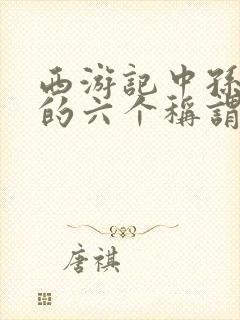 西游记中孫
的六个稱謂
唐祺